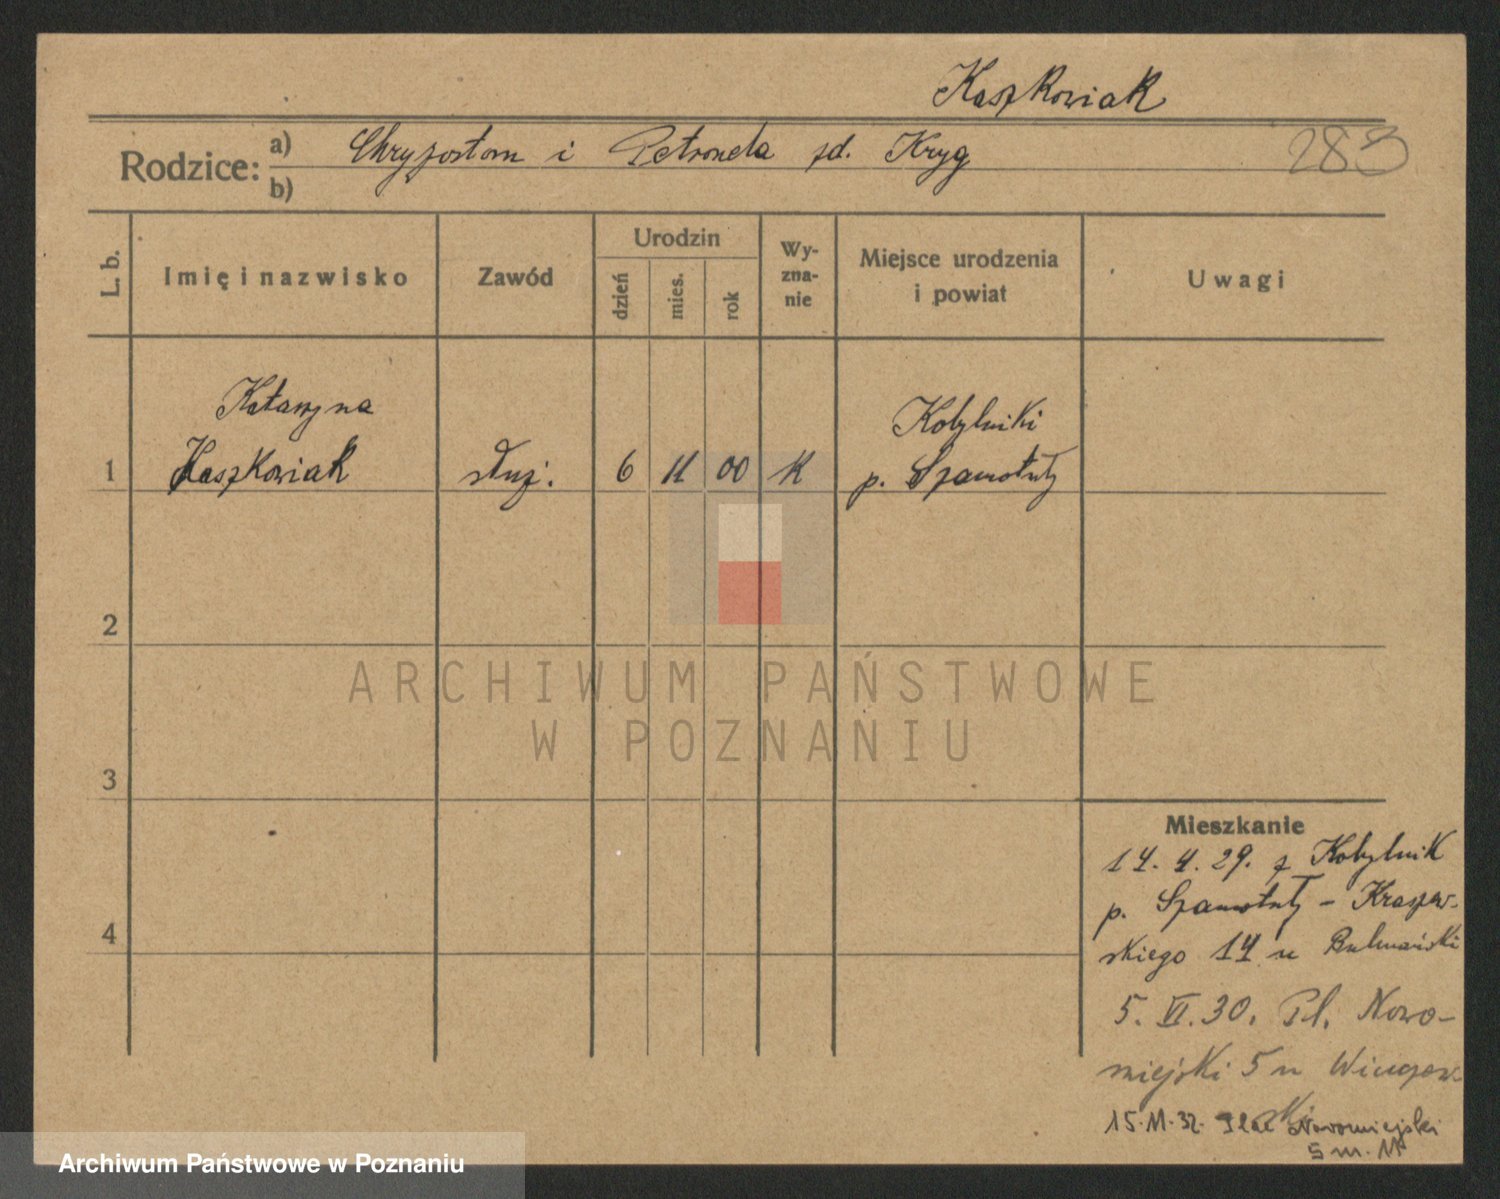 Kaszkowiak
Rodzice: a) Chryzostom i Petronela zd. Kryg
283
b)
L. b.
Imię i nazwisko
Zawód
Urodzin
dzień
mies.
rok
Wy-
zna-
nie
Miejsce urodzenia
i powiat
Uwagi
Katarzyna
1 Kaszkowiak służ. 6 11 00 K
Kobylniki
p. Szamotuły
2
3
4
ARCHIWUM PAŃSTWOWE
W POZNANIU
Mieszkanie
14. 4. 29. z Kobylnik
p. Szamotuły - Kraszew-
skiego 14 u
5. VI. 30. Pl. Nowo-
miejski 5 u
15.11.32. Plac Nowomiejski
5 m. 11
Archiwum Państwowe w Poznaniu